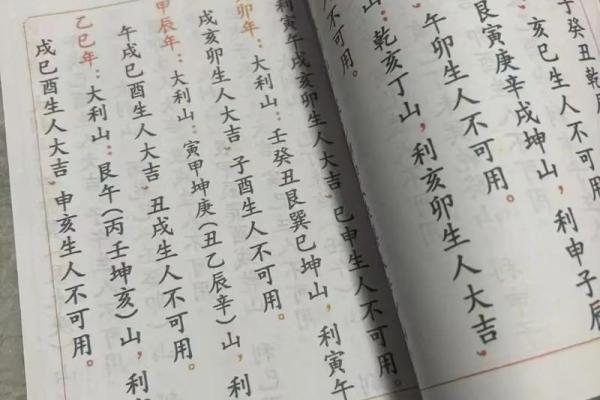 子癸丑乾
亥巳生人不可用。
艮寅庚辛戌坤山，利申子辰
午卯生人不可用。
山：乾亥丁山，利亥卯生人大吉。
不可用。
利寅午戌亥卯生人大吉。巳申生人不可用。
卯年：大利山：壬癸丑艮巽巳坤山，利寅午
戌亥卯生人大吉。子酉生人不可用。
甲辰年：大利山：寅甲坤庚（丑乙辰辛）山，利
午戌巳生人大吉。丑戌生人不可用。
乙巳年：大利山：艮午（丙壬坤亥）山，利
戌巳酉生人大吉。申亥生人不可用。